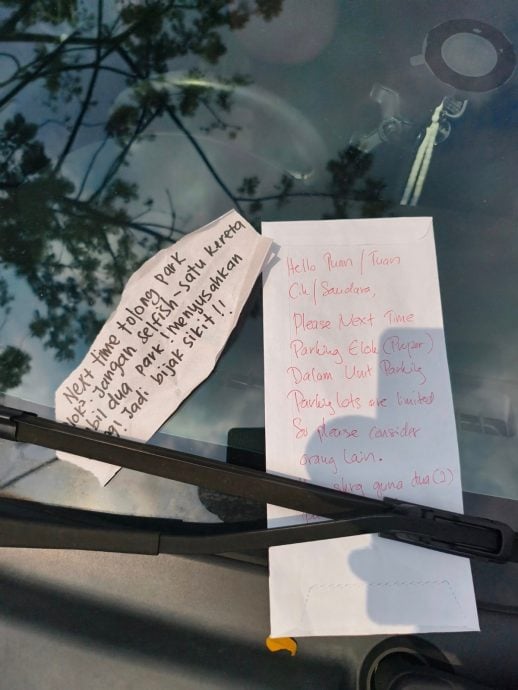 Next time tolong park
elok2. Jangan selfish-satu kereta
bil dua park! menyusahkan
gi. Jadi bijak sikit!!
Hello Puan / Tuan
Cik / Saudara,
Please Next Time
Parking Elok (Proper)
Dalam Unit Parking
Parking lots are limited
So please consider
orang lain.
skrg guna dua (2)